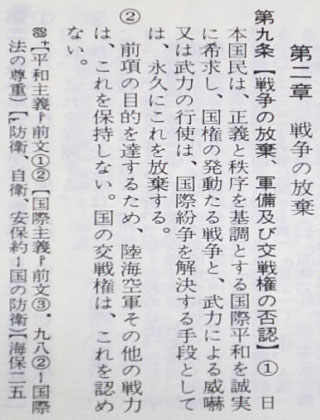 第二章　戦争の放棄
第九条【戦争の放棄、軍備及び交戦権の否認】①　日
本国民は、正義と秩序を基調とする国際平和を誠実
に希求し、国権の発動たる戦争と、武力による威嚇
又は武力の行使は、国際紛争を解決する手段として
は、永久にこれを放棄する。
②　前項の目的を達するため、陸海空軍その他の戦力
は、これを保持しない。国の交戦権は、これを認め
ない。
【平和主義―前文①②【国際主義―前文③、九八②―国際
法の尊重）【防衛、自衛、安保約―国の防衛）【海保二五